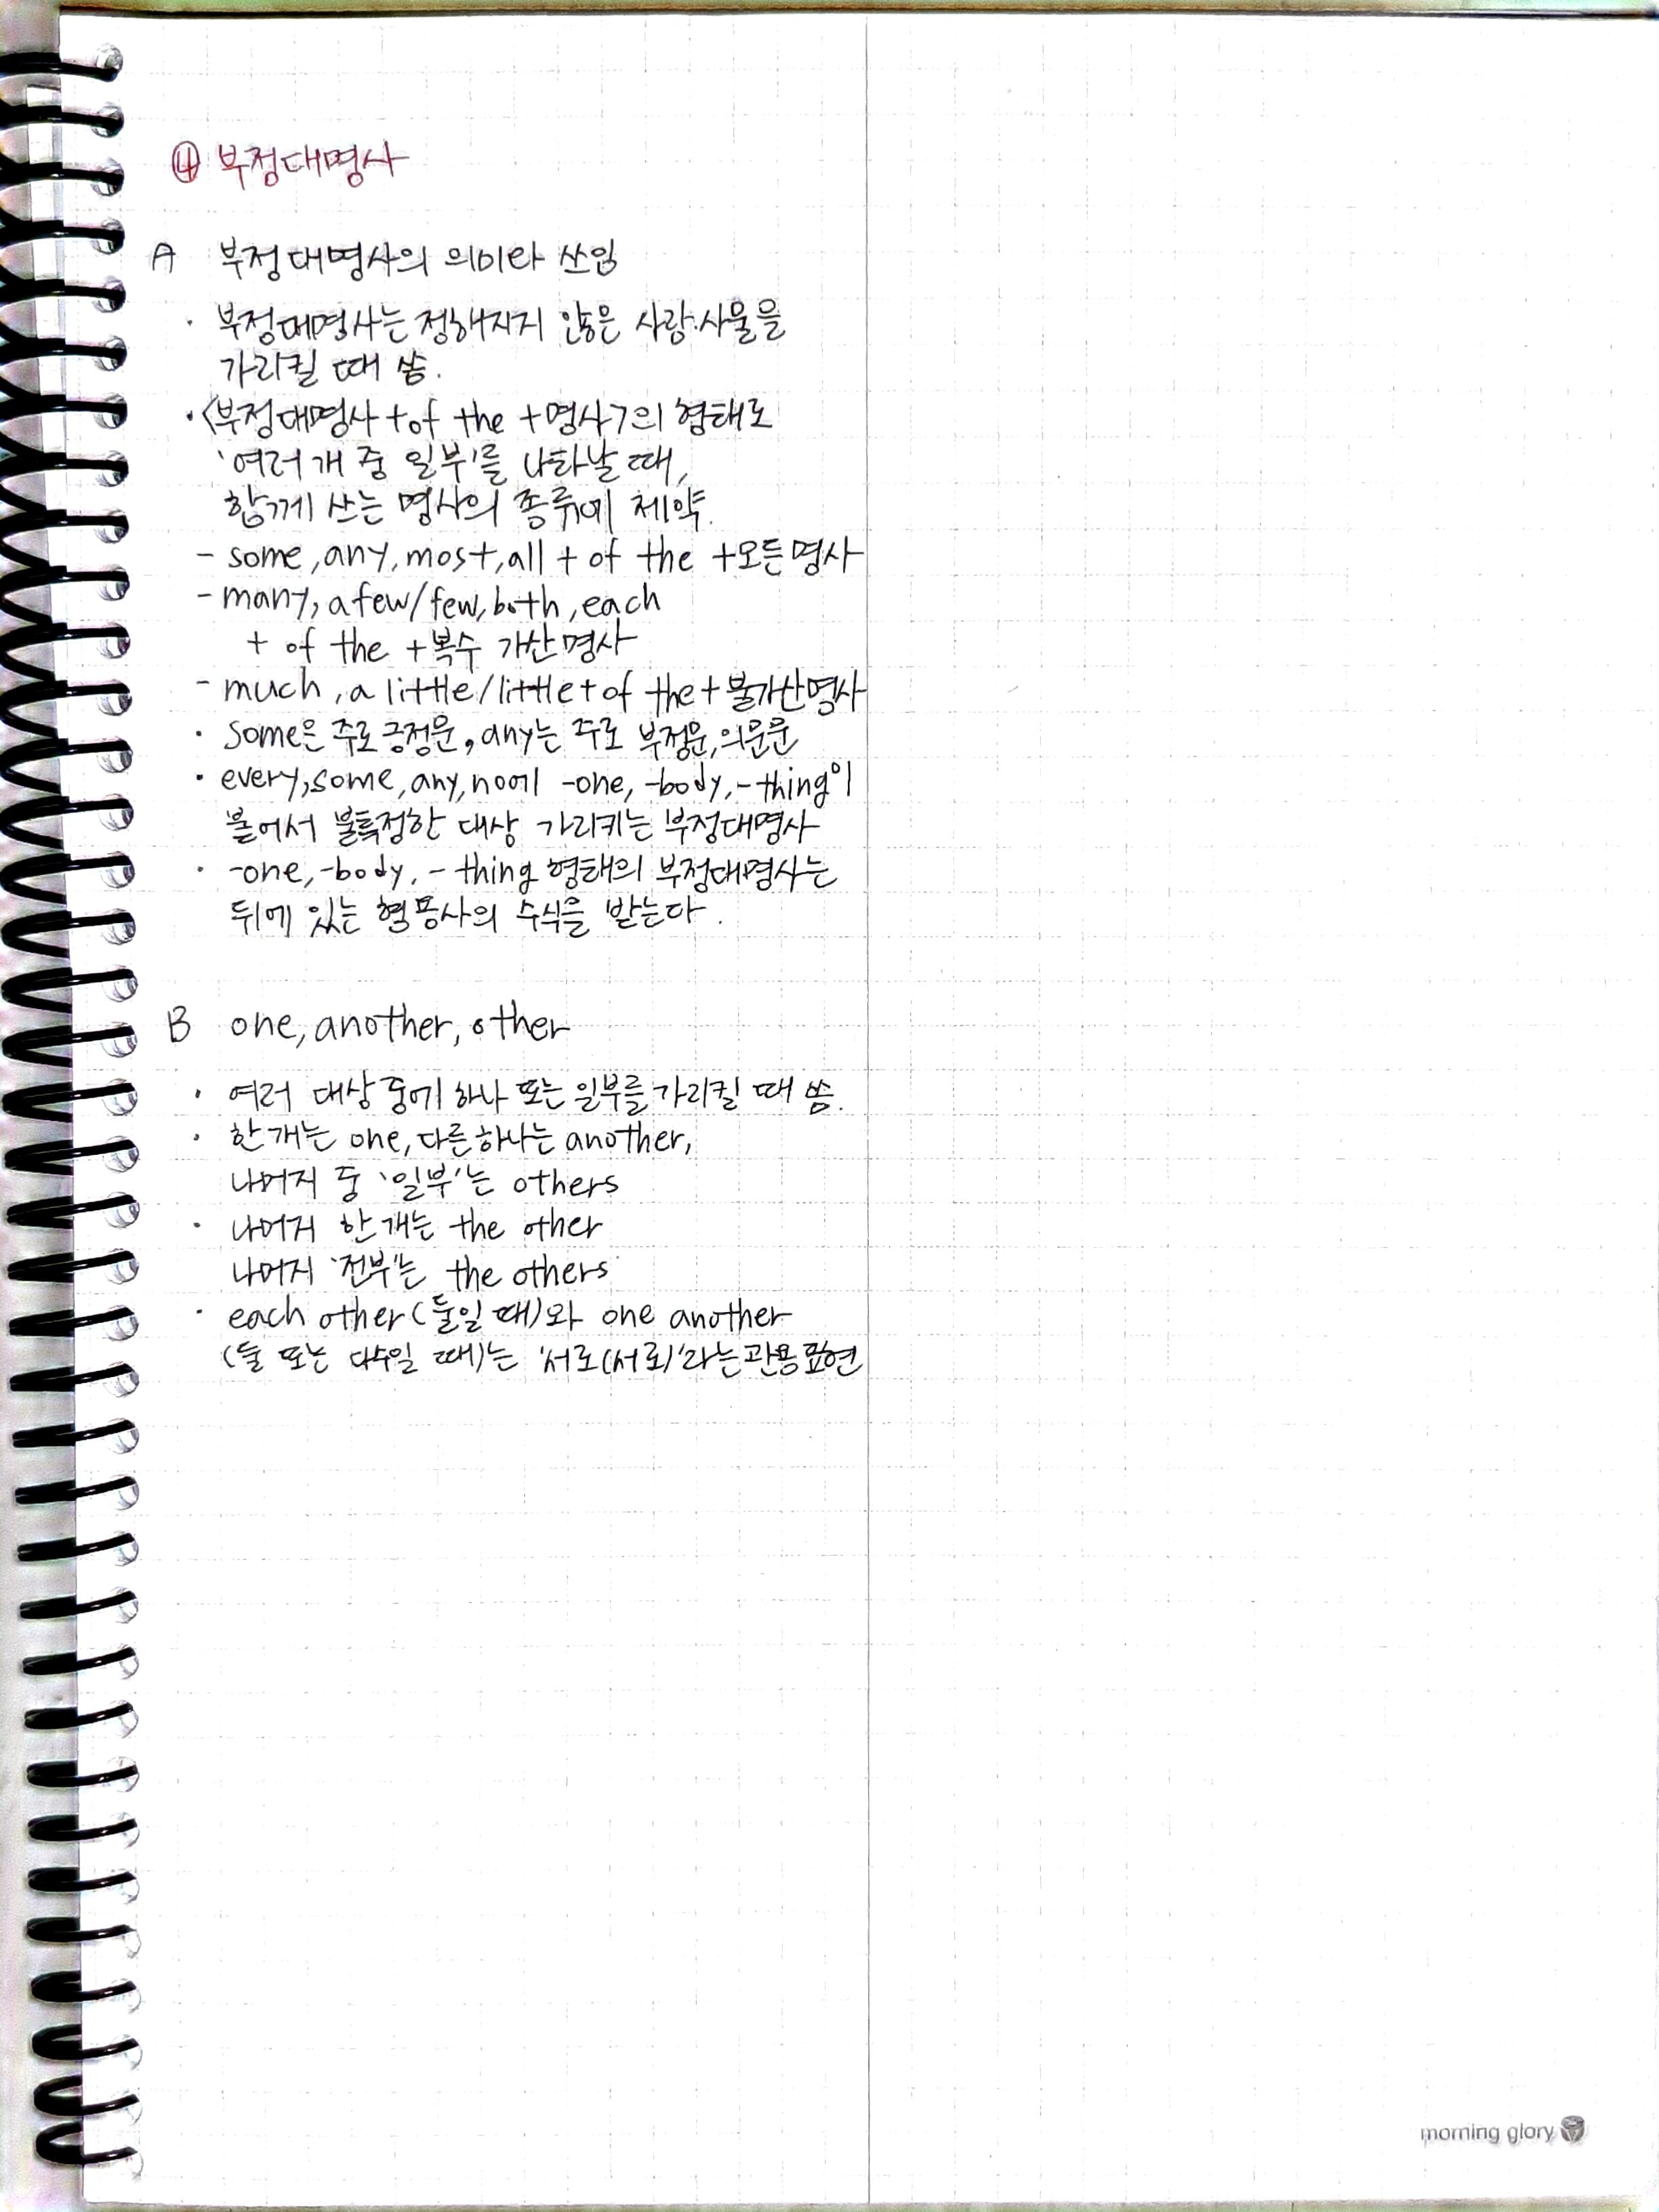 ④ 부정대명사
A 부정대명사의 의미와 쓰임
· 부정대명사는 정해지지 않은 사람·사물을
가리킬 때 씀.
· <부정대명사 + of the + 명사>의 형태로
'여러 개 중 일부'를 나타날 때,
함께 쓰는 명사의 종류에 제약.
- some, any, most, all + of the + 모든 명사
- many, a few/few, both, each
+ of the + 복수 가산명사
- much, a little/little + of the + 불가산명사
· some은 주로 긍정문, any는 주로 부정문, 의문문
· every, some, any, no에 -one, -body, -thing이
붙어서 불특정한 대상 가리키는 부정대명사
· -one, -body, -thing 형태의 부정대명사는
뒤에 있는 형용사의 수식을 받는다.
B one, another, other
· 여러 대상 중에 하나 또는 일부를 가리킬 때 씀.
· 한 개는 one, 다른 하나는 another,
나머지 중 '일부'는 others
· 나머지 한 개는 the other
나머지 '전부'는 the others
· each other (둘일 때)와 one another
(둘 또는 다수일 때)는 '서로(서로)'라는 관용표현
morning glory